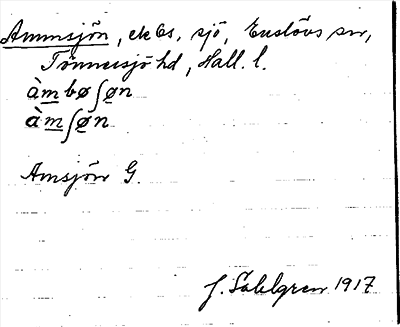 Ammsjön, ek Bs, sjö, Enslövs sn,
Tönnersjö hd, Hall. l.
àmbøʃøn
àmʃøn
Amsjön G.
J. Sahlgren 1917